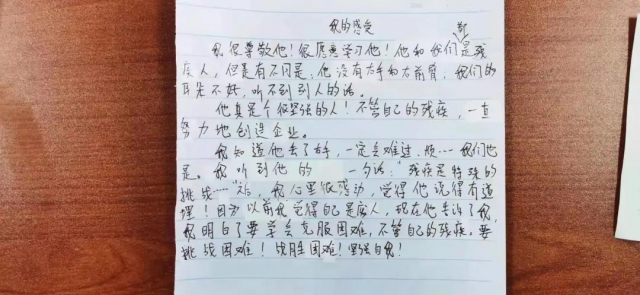 我的感受
我很尊敬他！很愿意学习他！他和我们都是残
疾人，但是有不同是：他没有右手和右前臂，我们的
耳朵不好，听不到别人的话。
他真是个很坚强的人！不管自己的残疾，一直
努力地创造企业。
我知道他丢了右手，一定会难过、烦…… 我们也
是。我听到他的 一句话：残疾是特殊的
挑战……后，我心里很感动，觉得他说得有道
理！因为以前我觉得自己是废人，现在他告诉了我，
我明白了要学会克服困难，不管自己的残疾。要
挑战困难！战胜困难！坚强自我！